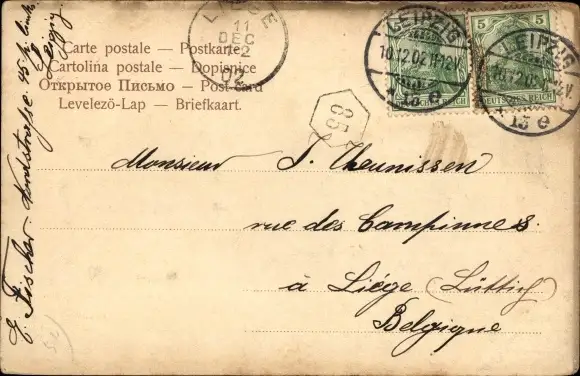 Carte postale — Postkarte
Cartolina postale — Dopisnice
Открытое Письмо — Post-card
Levelezö-Lap — Briefkaart.
LIÉGE
11
DEC
12
02
LEIPZIG
10.12.02.11-12V.
* 13 e
5 5
LEIPZIG
10.12.02.11-12V.
* 13 e
DEUTSCHES REICH
85
Monsieur J. Theunissen
rue des Campinnes.
à Liége (Lüttich)
Belgique
E. Fischer
Leipzig